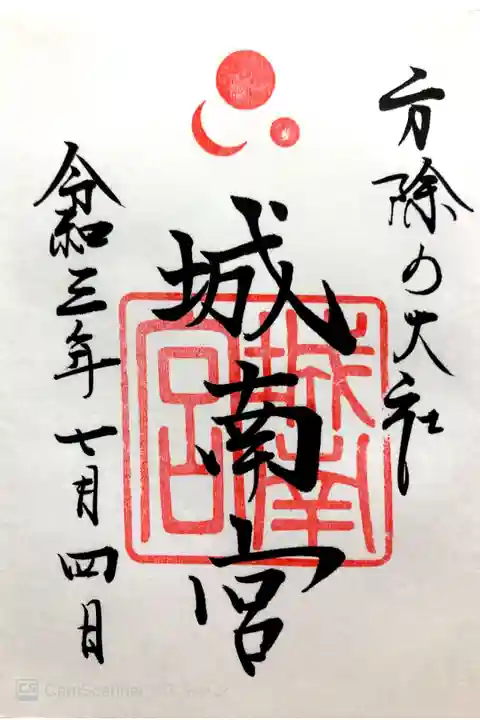 方除の大社
城南宮
城南宮
令和三年七月四日
CS CamScanner